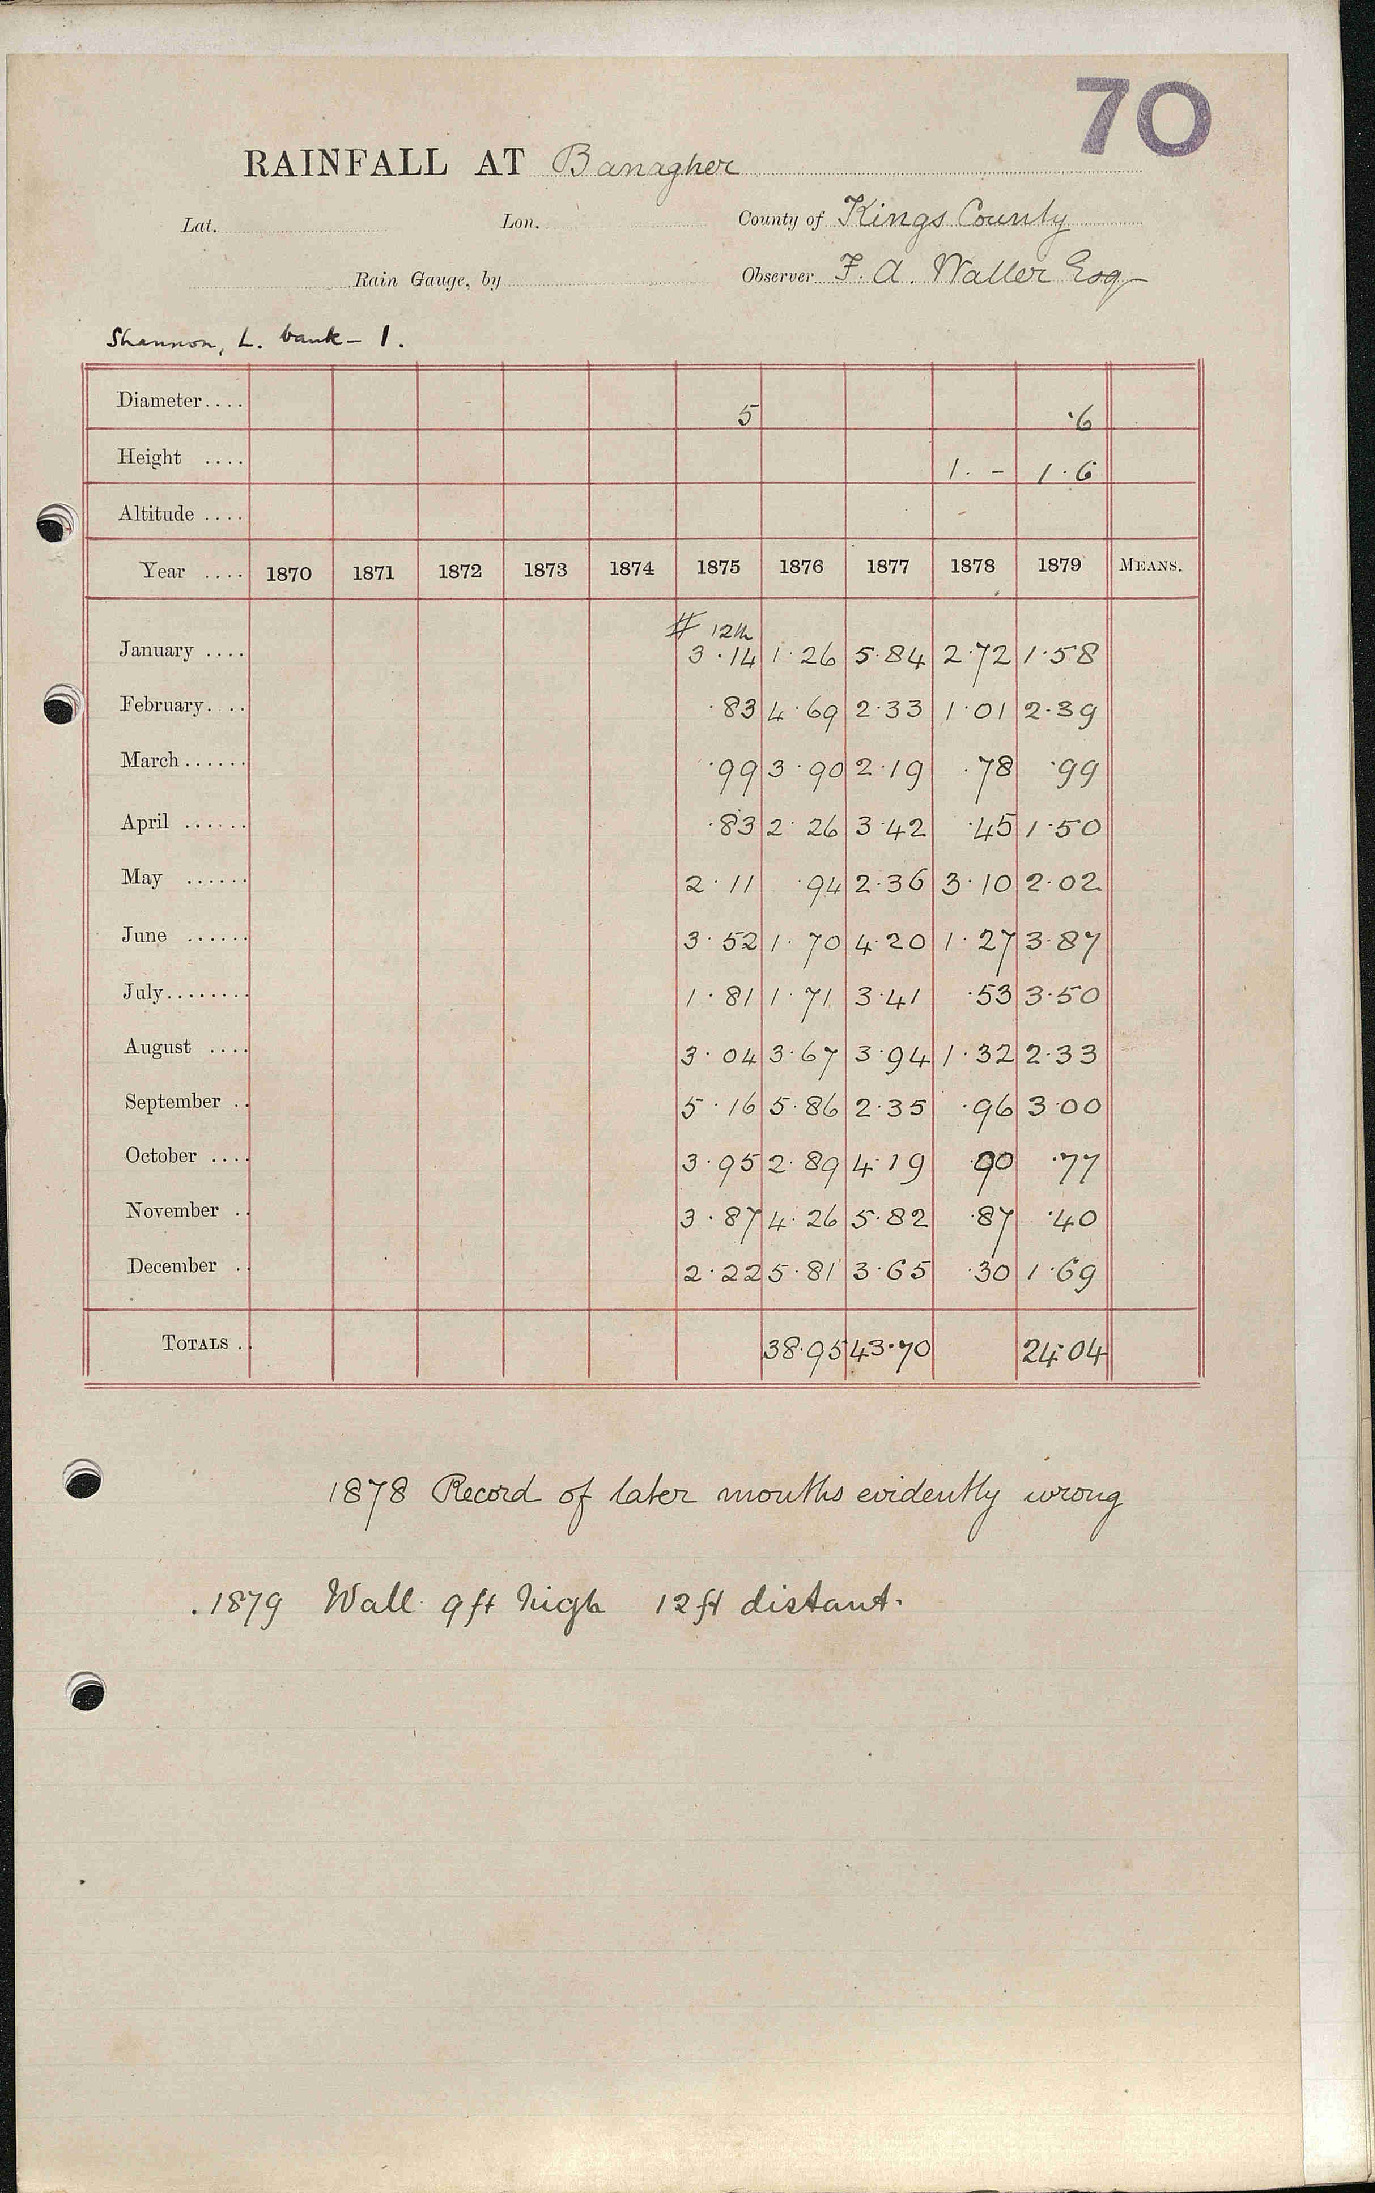 70
RAINFALL AT Banagher
Lat. Lon. County of Kings County
Rain Gauge, by Observer F. A. Waller Esq
Shannon, L. bank - 1.
Diameter.... 5 .6
Height .... 1. - 1.6
Altitude ....
Year .... 1870 1871 1872 1873 1874 1875 1876 1877 1878 1879 MEANS.
# 12th
January .... 3.14 1.26 5.84 2.72 1.58
February.... .83 4.69 2.33 1.01 2.39
March...... .99 3.90 2.19 .78 .99
April ...... .83 2.26 3.42 .45 1.50
May ...... 2.11 .94 2.36 3.10 2.02
June ...... 3.52 1.70 4.20 1.27 3.87
July........ 1.81 1.71 3.41 .53 3.50
August .... 3.04 3.67 3.94 1.32 2.33
September .. 5.16 5.86 2.35 .96 3.00
October .... 3.95 2.89 4.19 .90 .77
November .. 3.87 4.26 5.82 .87 .40
December .. 2.22 5.81 3.65 .30 1.69
TOTALS .. 38.95 43.70 24.04
1878 Record of later months evidently wrong
.1879 Wall 9ft high 12ft distant.